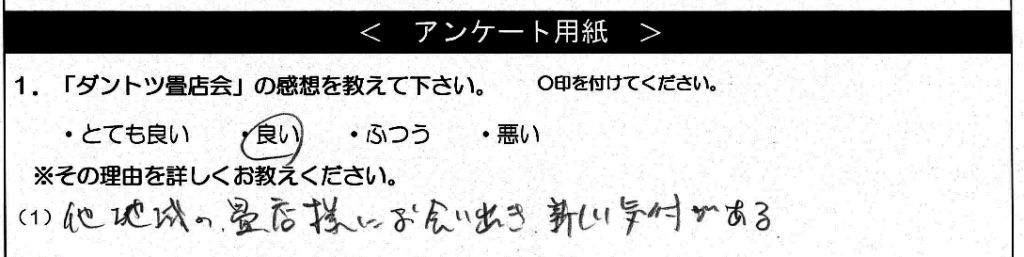 ＜ アンケート用紙 ＞
1．「ダントツ畳店会」の感想を教えて下さい。 〇印を付けてください。
・とても良い ・良い ・ふつう ・悪い
※その理由を詳しくお教えください。
（1）他地域の畳店様にお会い出き 新しい気付がある